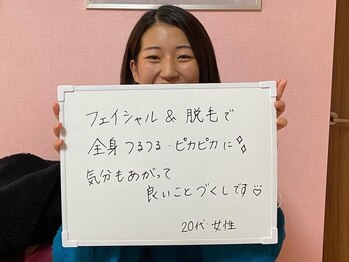 フェイシャル & 脱毛で
全身つるつる・ピカピカに
気分もあがって
良いことづくしです
20代 女性